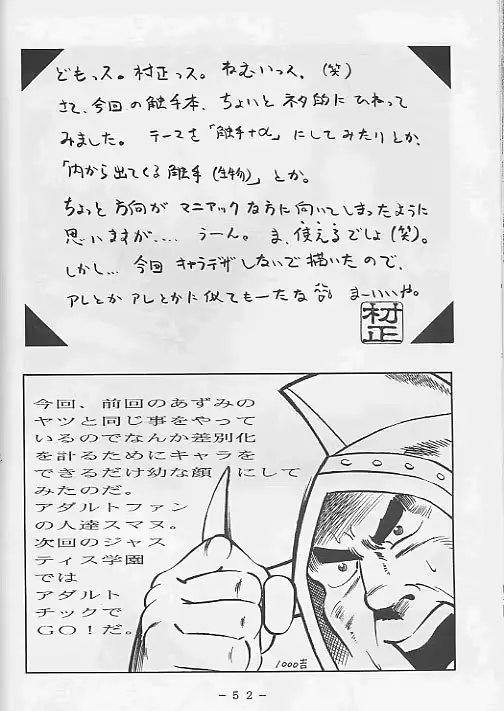 どもっス。村正っス。ねむいっス。(笑)
さて、今回の触手本、ちょいとネタ的にひねって
みました。テーマを「触手+α」にしてみたりとか、
「内から出てくる触手(生物)」とか。
ちょっと方向がマニアックな方に向いてしまったように
思いますが.... うーん。ま、使えるでしょ(笑)。
しかし... 今回キャラデザしないで描いたので、
アレとかアレとかに似てもーたな まーいいや。
村正
今回、前回のあずみの
ヤツと同じ事をやって
いるのでなんか差別化
を計るためにキャラを
できるだけ幼な顔にして
みたのだ。
アダルトファン
の人達スマヌ。
次回のジャス
ティス学園
では
アダルト
チックで
GO!だ。
1000吉
-52-